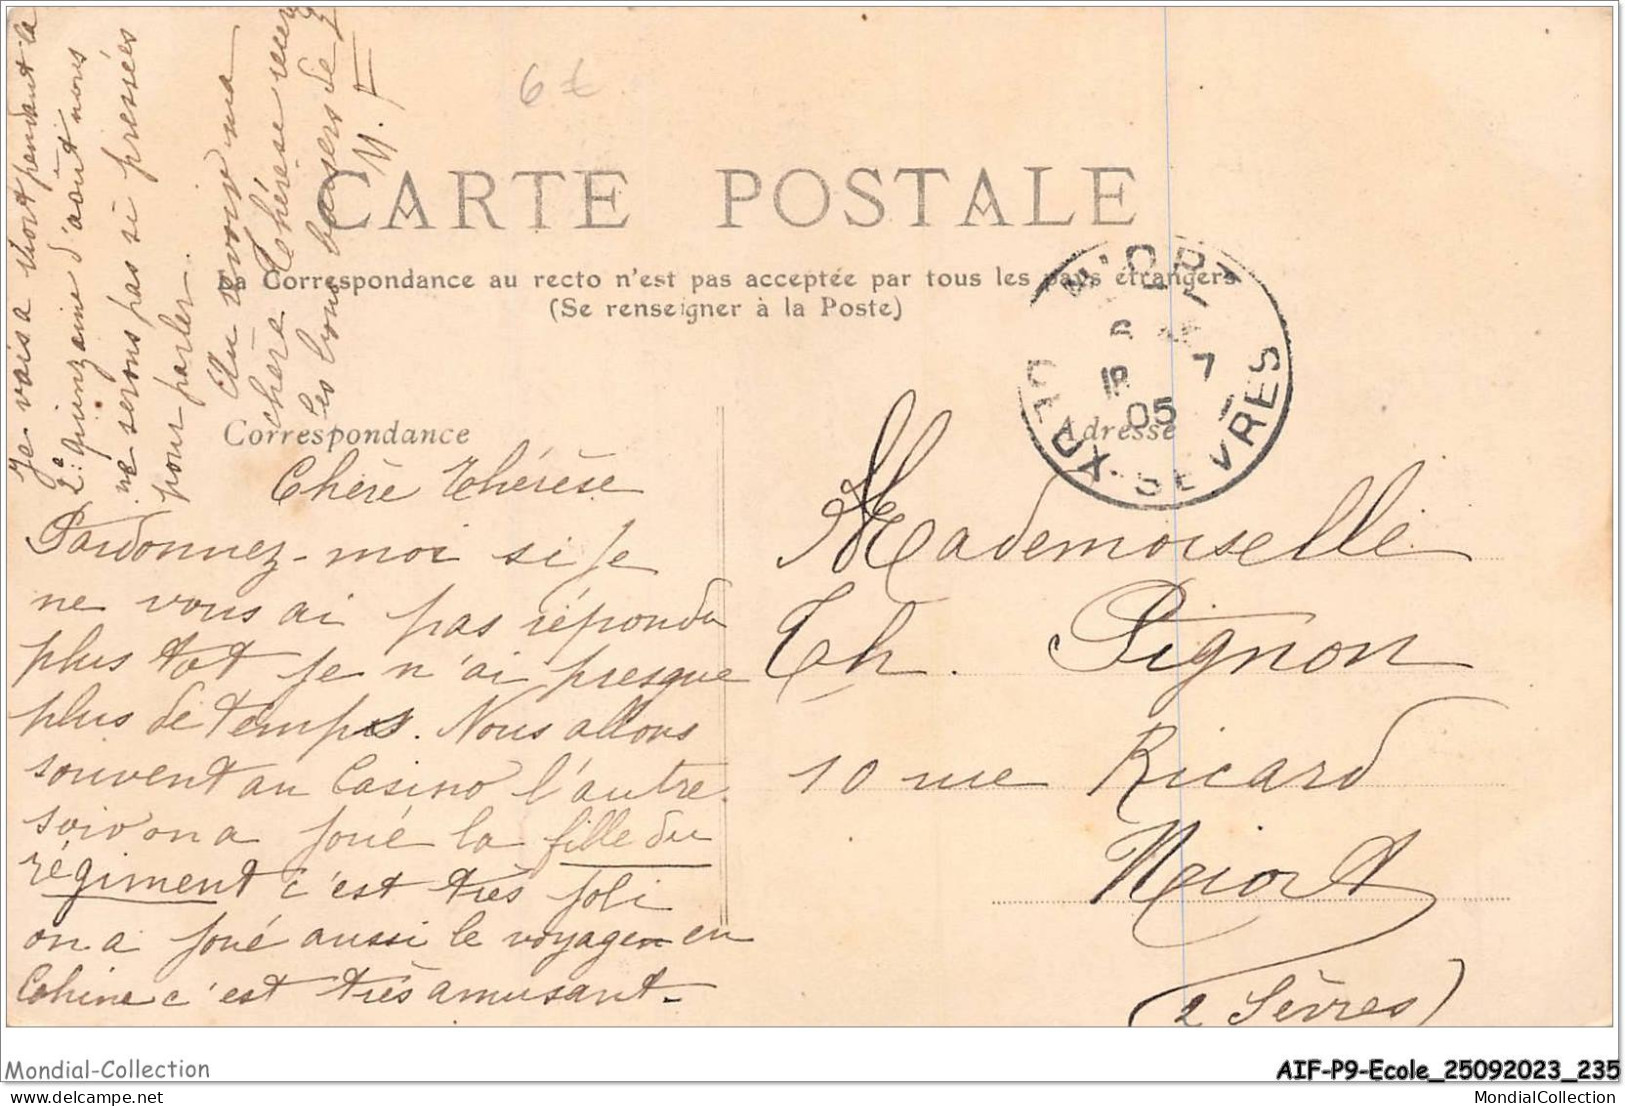 6 €
CARTE POSTALE
La Correspondance au recto n'est pas acceptée par tous les pays étrangers
(Se renseigner à la Poste)
NIORT
DEUX-SEVRES
6
18 7
05
Correspondance
Adresse
Chère Thérèse
Pardonnez-moi si je
ne vous ai pas répondu
plus tot je n'ai presque
plus de temps. Nous allons
souvent au Casino l'autre
soir on a joué la fille du
régiment c'est très joli
on a joué aussi le voyage en
Chine c'est très amusant.
Je vais a Niort pendant la
2e quinzaine d'août nous
ne serons pas si pressées
pour parler.
Au revoir ma
chère Thérèse recev
les bons baisers de
M. F
Mademoiselle
Th. Pignon
10 rue Ricard
Niort
(2 Sèvres)
Mondial-Collection
AIF-P9-Ecole_25092023_235
MondialCollection